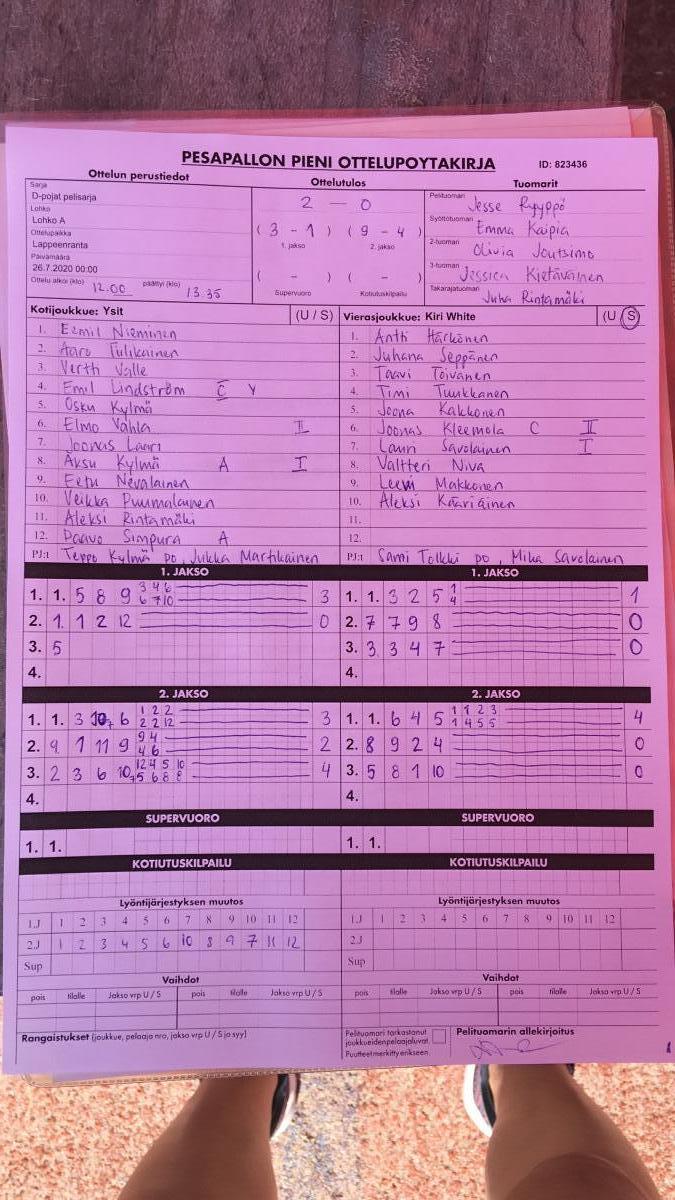 PESAPALLON PIENI OTTELUPOYTAKIRJA ID: 823436
Ottelun perustiedot Ottelutulos Tuomarit
Sarja
D-pojat pelisarja
Lohko
Lohko A
Ottelupaikka
Lappeenranta
Päivämäärä
26.7.2020 00:00
Ottelu alkoi (klo) 12.00 päättyi (klo) 13.35
2 - 0
( 3 - 1 ) ( 9 - 4 )
1. jakso 2. jakso
( - ) ( - )
Supervuoro Kotiutuskilpailu
Pelituomari Jesse Ryyppö
Syöttötuomari Emma Kaipia
2-tuoman Olivia Joutsimo
3-tuoman Jessica Kietäväinen
Takarajatuomari Juha Rintamäki
Kotijoukkue: Ysit (U / S)
1. Eemil Nieminen
2. Aaro Tulikainen
3. Vertti Valle
4. Emil Lindström C Y
5. Osku Kylmä
6. Elmo Vahla II
7. Joonas Laari
8. Aksu Kylmä A I
9. Eetu Nevalainen
10. Veikka Puumalainen
11. Aleksi Rintamäki
12. Paavo Simpura A
PJ:t Teppo Kylmä po, Jukka Martikainen
Vierasjoukkue: Kiri White (U / S)
1. Antti Härkönen
2. Juhana Seppänen
3. Taavi Toivanen
4. Timi Tuukkanen
5. Joona Kakkonen
6. Joonas Kleemola C II
7. Lauri Savolainen I
8. Valtteri Niva
9. Leevi Makkonen
10. Aleksi Kääriäinen
11.
12.
PJ:t Sami Tolkki po, Mika Savolainen
1. JAKSO 1. JAKSO
1. 1. 5 8 9 3 4 6 3
6 7 10
2. 1 1 2 12 0
3. 5
4.
1. 1. 3 2 5 1 1
4
2. 7 7 9 8 0
3. 3 3 4 7 0
4.
2. JAKSO 2. JAKSO
1. 1. 3 10 7 6 1 2 2 3
2 2 12
2. 9 1 11 9 9 4 2
4 6
3. 2 3 6 10 12 4 5 10 4
7 5 6 8 8
4.
1. 1. 6 4 5 1 1 2 3 4
1 4 5 5
2. 8 9 2 4 0
3. 5 8 1 10 0
4.
SUPERVUORO SUPERVUORO
1. 1. 1. 1.
KOTIUTUSKILPAILU KOTIUTUSKILPAILU
Lyöntijärjestyksen muutos Lyöntijärjestyksen muutos
1.J 1 2 3 4 5 6 7 8 9 10 11 12 1.J 1 2 3 4 5 6 7 8 9 10 11 12
2.J 1 2 3 4 5 6 10 8 9 7 11 12 2.J
Sup Sup
Vaihdot Vaihdot
pois tilalle Jakso vrp U / S pois tilalle Jakso vrp U / S pois tilalle Jakso vrp U / S pois tilalle Jakso vrp U / S
Rangaistukset (joukkue, pelaaja nro, jakso vrp U / S ja syy)
Pelituomari tarkastanut
joukkueiden pelaajaluvat.
Puutteet merkitty erikseen.
Pelituomarin allekirjoitus